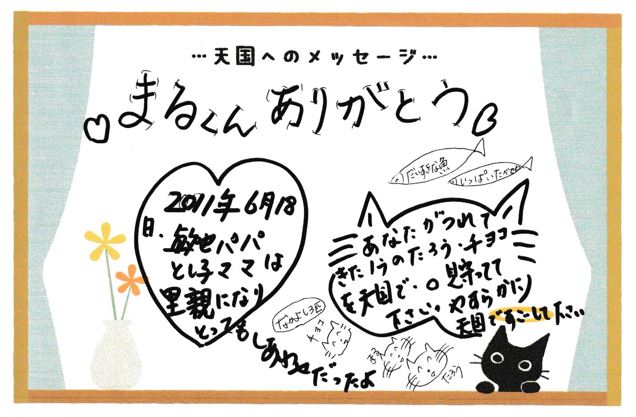 …天国へのメッセージ…
まるくんありがとう
だいすきな魚
いっぱいたべてね
2011年6月18
日・敏也パパ
とし子ママは
里親になり
とってもしあわせだったよ
あなたがつれて
きた1うのたろう・チョコ
を天国で・見守ってて
下さい。やすらかに
天国ですごして下さい
なかよし3匹
チョコ
まる
たろう